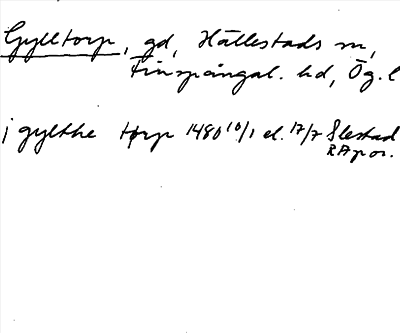 Gylltorp, gd, Hällestads sn,
Finspångal. hd, Ög. l
j gylthe torp 1480 10/1 el. 17/7 Slestad
RAp or.